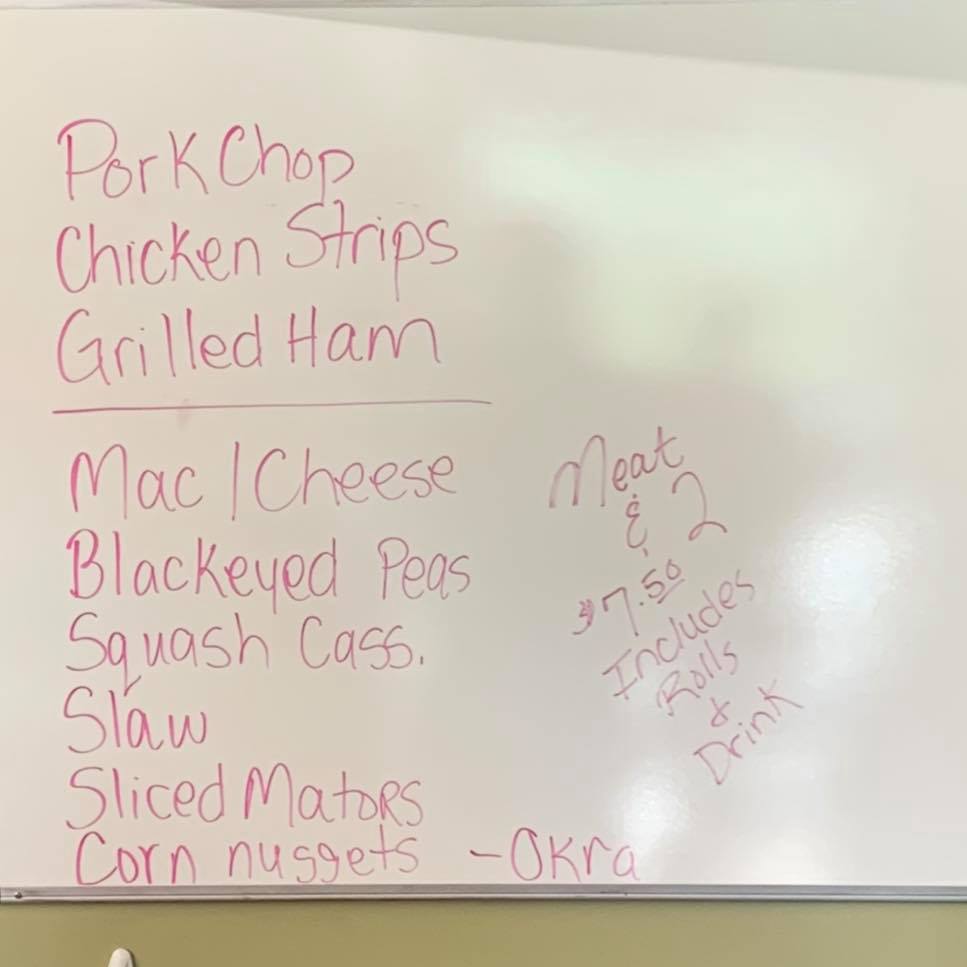 Pork Chop
Chicken Strips
Grilled Ham
Mac / Cheese
Blackeyed Peas
Squash Cass.
Slaw
Sliced Maters
Corn nuggets - Okra
Meat
& 2
$7.50
Includes
Rolls
&
Drink